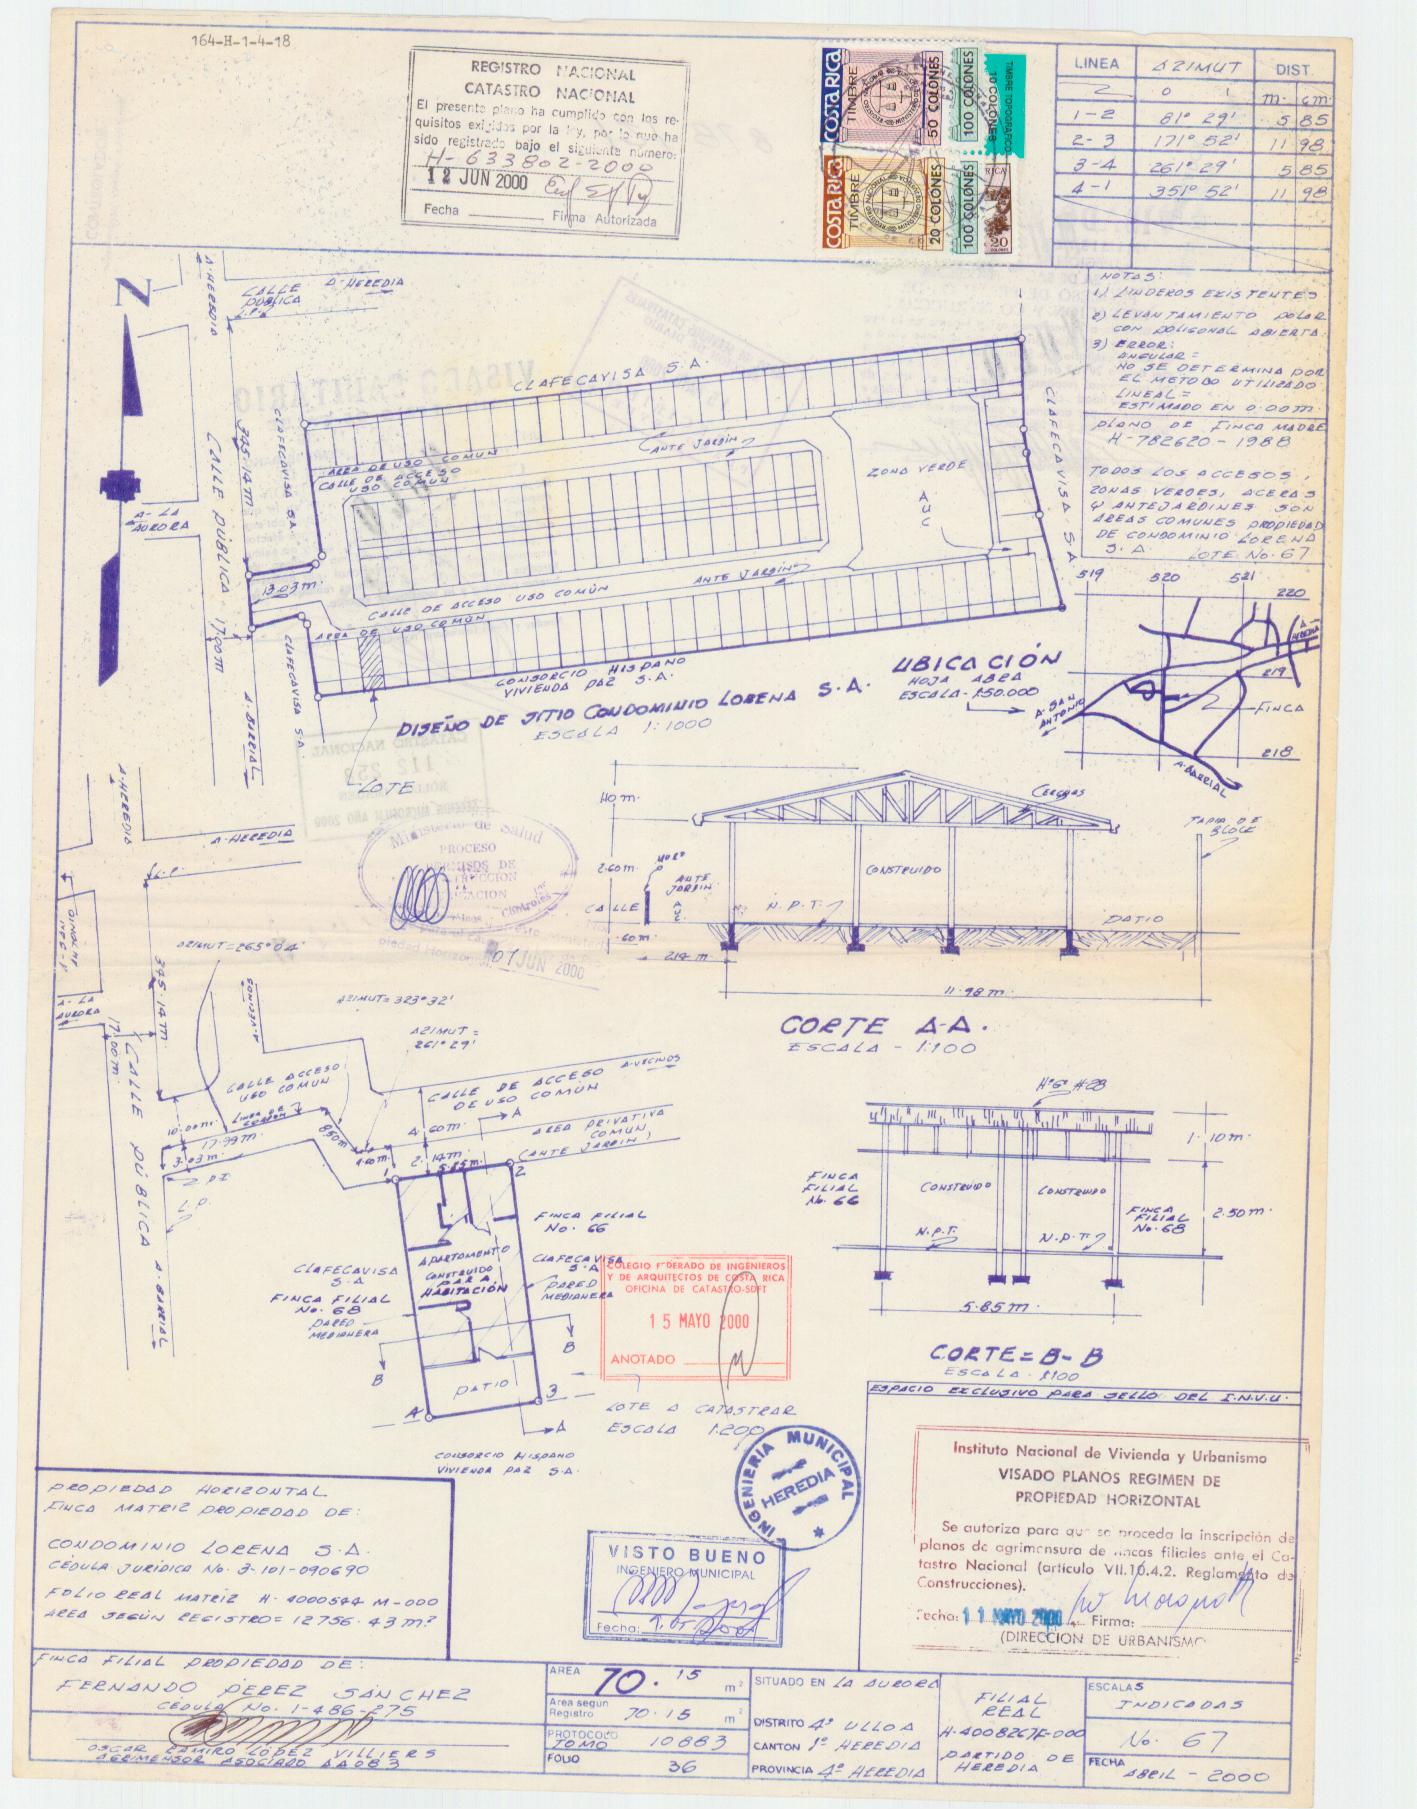 164-H-1-4-18
REGISTRO NACIONAL
CATASTRO NACIONAL
El presente plano ha cumplido con los re-
quisitos exigidos por la ley, por lo que ha
sido registrado bajo el siguiente número:
H-633802-2000
12 JUN 2000
Fecha Firma Autorizada
COSTA RICA
TIMBRE
50 COLONES
100 COLONES
TIMBRE TOPOGRAFICO
10 COLONES
COSTA RICA
TIMBRE
20 COLONES
100 COLONES
RICA
20
COLONES
LINEA AZIMUT DIST.
o ' m. cm.
1-2 81° 29' 5 85
2-3 171° 52' 11 98
3-4 261° 29' 5 85
4-1 351° 52' 11 98
NOTAS:
1) LINDEROS EXISTENTES
2) LEVANTAMIENTO POLAR
CON POLIGONAL ABIERTA.
3) ERROR:
ANGULAR =
NO SE DETERMINA POR
EL METODO UTILIZADO
LINEAL =
ESTIMADO EN 0.00 m.
PLANO DE FINCA MADRE
H-782620-1988
TODOS LOS ACCESOS,
ZONAS VERDES, ACERAS
Y ANTEJARDINES SON
AREAS COMUNES PROPIEDAD
DE CONDOMINIO LORENA
S.A. LOTE No. 67
N
A. HEREDIA
CALLE PUBLICA
A. HEREDIA
L.P.
CLAFECAVISA S.A.
CLAFECAVISA S.A.
345.14 m.
CALLE PÚBLICA
17.00 m
A. LA
AURORA
13.03 m.
CLAFECAVISA S.A.
A. BARRIAL
AREA DE USO COMUN
CALLE DE ACCESO
USO COMUN
ANTE JARDIN
ZONA VERDE
A
U
C
CLAFECAVISA S.A.
ANTE JARDIN
CALLE DE ACCESO USO COMÚN
AREA DE USO COMÚN
CONSORCIO HISPANO
VIVIENDA PAZ S.A.
DISEÑO DE SITIO CONDOMINIO LORENA S.A.
ESCALA 1:1000
LOTE
UBICACIÓN
HOJA ABRA
ESCALA - 1:50.000
519 520 521
220
219
218
A HEREDIA
FINCA
A. SAN
ANTONIO
A. BARRIAL
A. HEREDIA
A. HEREDIA
L.P.
A. LA
AURORA
345.14 m
17.00 m.
CALLE PÚBLICA
A. BARRIAL
Ministerio de Salud
PROCESO
07 JUN 2000
1.10 m.
2.60 m.
CALLE
ANTE
JARDIN
A
U
C
.60 m.
2.14 m
N.P.T.
CONSTRUIDO
Cerchas
TAPIA DE
BLOCK
PATIO
11.98 m.
CORTE A-A.
ESCALA - 1:100
AZIMUT = 265° 04'
AZIMUT = 323° 32'
AZIMUT =
261° 29'
CALLE ACCESO
USO COMUN
LINEA DE
CORDON
10.00 m.
17.99 m.
3.03 m.
L.P.
8.50 m
1.60 m.
CALLE DE ACCESO A. VECINOS
DE USO COMÚN
A
4.60 m.
AREA PRIVATIVA
COMUN
(ANTE JARDIN)
2.14 m
5.85 m.
1
2
FINCA FILIAL
No. 66
CLAFECAVISA
S.A
PARED
MEDIANERA
APARTAMENTO
CONSTRUIDO
PARA
HABITACIÓN
CLAFECAVISA
S.A
FINCA FILIAL
No. 68
PARED
MEDIANERA
B
B
PATIO
4
3
A
LOTE A CATASTRAR
ESCALA 1:200
CONSORCIO HISPANO
VIVIENDA PAZ S.A.
COLEGIO FEDERADO DE INGENIEROS
Y DE ARQUITECTOS DE COSTA RICA
OFICINA DE CATASTRO-SDFT
15 MAYO 2000
ANOTADO
HºGº H-28
1.10 m.
FINCA
FILIAL
No. 66
CONSTRUIDO
CONSTRUIDO
FINCA
FILIAL
No. 68
2.50 m.
N.P.T.
N.P.T.
5.85 m.
CORTE = B-B
ESCALA. 1:100
ESPACIO EXCLUSIVO PARA SELLO DEL I.N.V.U.
Instituto Nacional de Vivienda y Urbanismo
VISADO PLANOS REGIMEN DE
PROPIEDAD HORIZONTAL
Se autoriza para que se proceda la inscripción de
planos de agrimensura de fincas filiales ante el Ca-
tastro Nacional (artículo VII.10.4.2. Reglamento de
Construcciones).
Fecha: 11 MAYO 2000 Firma:
(DIRECCION DE URBANISMO
INGENIERIA MUNICIPAL
HEREDIA
VISTO BUENO
INGENIERO MUNICIPAL
Fecha:
PROPIEDAD HORIZONTAL
FINCA MATRIZ PROPIEDAD DE:
CONDOMINIO LORENA S.A.
CÉDULA JURÍDICA No. 3-101-090690
FOLIO REAL MATRIZ H. 4000544 M-000
AREA SEGÚN REGISTRO = 12756.43 m²
FINCA FILIAL PROPIEDAD DE:
FERNANDO PÉREZ SÁNCHEZ
CÉDULA No. 1-486-275
OSCAR RAMIRO LOPEZ VILLIERS
AGRIMENSOR ASOCIADO AA083
AREA 70.15 m²
Area según
Registro 70.15 m²
PROTOCOLO
TOMO 10883
FOLIO 36
SITUADO EN LA AURORA
DISTRITO 4º ULLOA
CANTON 1º HEREDIA
PROVINCIA 4º HEREDIA
FILIAL
REAL
H-4008267F-000
PARTIDO DE
HEREDIA
ESCALAS
INDICADAS
No. 67
FECHA
ABRIL - 2000